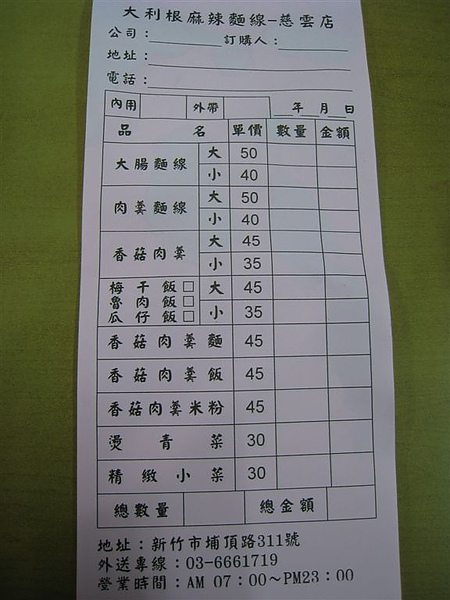 大利根麻辣麵線-慈雲店
公司： 訂購人：
地址：
電話：
內用 外帶 年 月 日
品 名 單價 數量 金額
大腸麵線 大 50
小 40
肉羹麵線 大 50
小 40
香菇肉羹 大 45
小 35
梅干飯□ 大 45
魯肉飯□
瓜仔飯□ 小 35
香菇肉羹麵 45
香菇肉羹飯 45
香菇肉羹米粉 45
燙青菜 30
精緻小菜 30
總數量 總金額
地址：新竹市埔頂路311號
外送專線：03-6661719
營業時間：AM 07：00～PM23：00